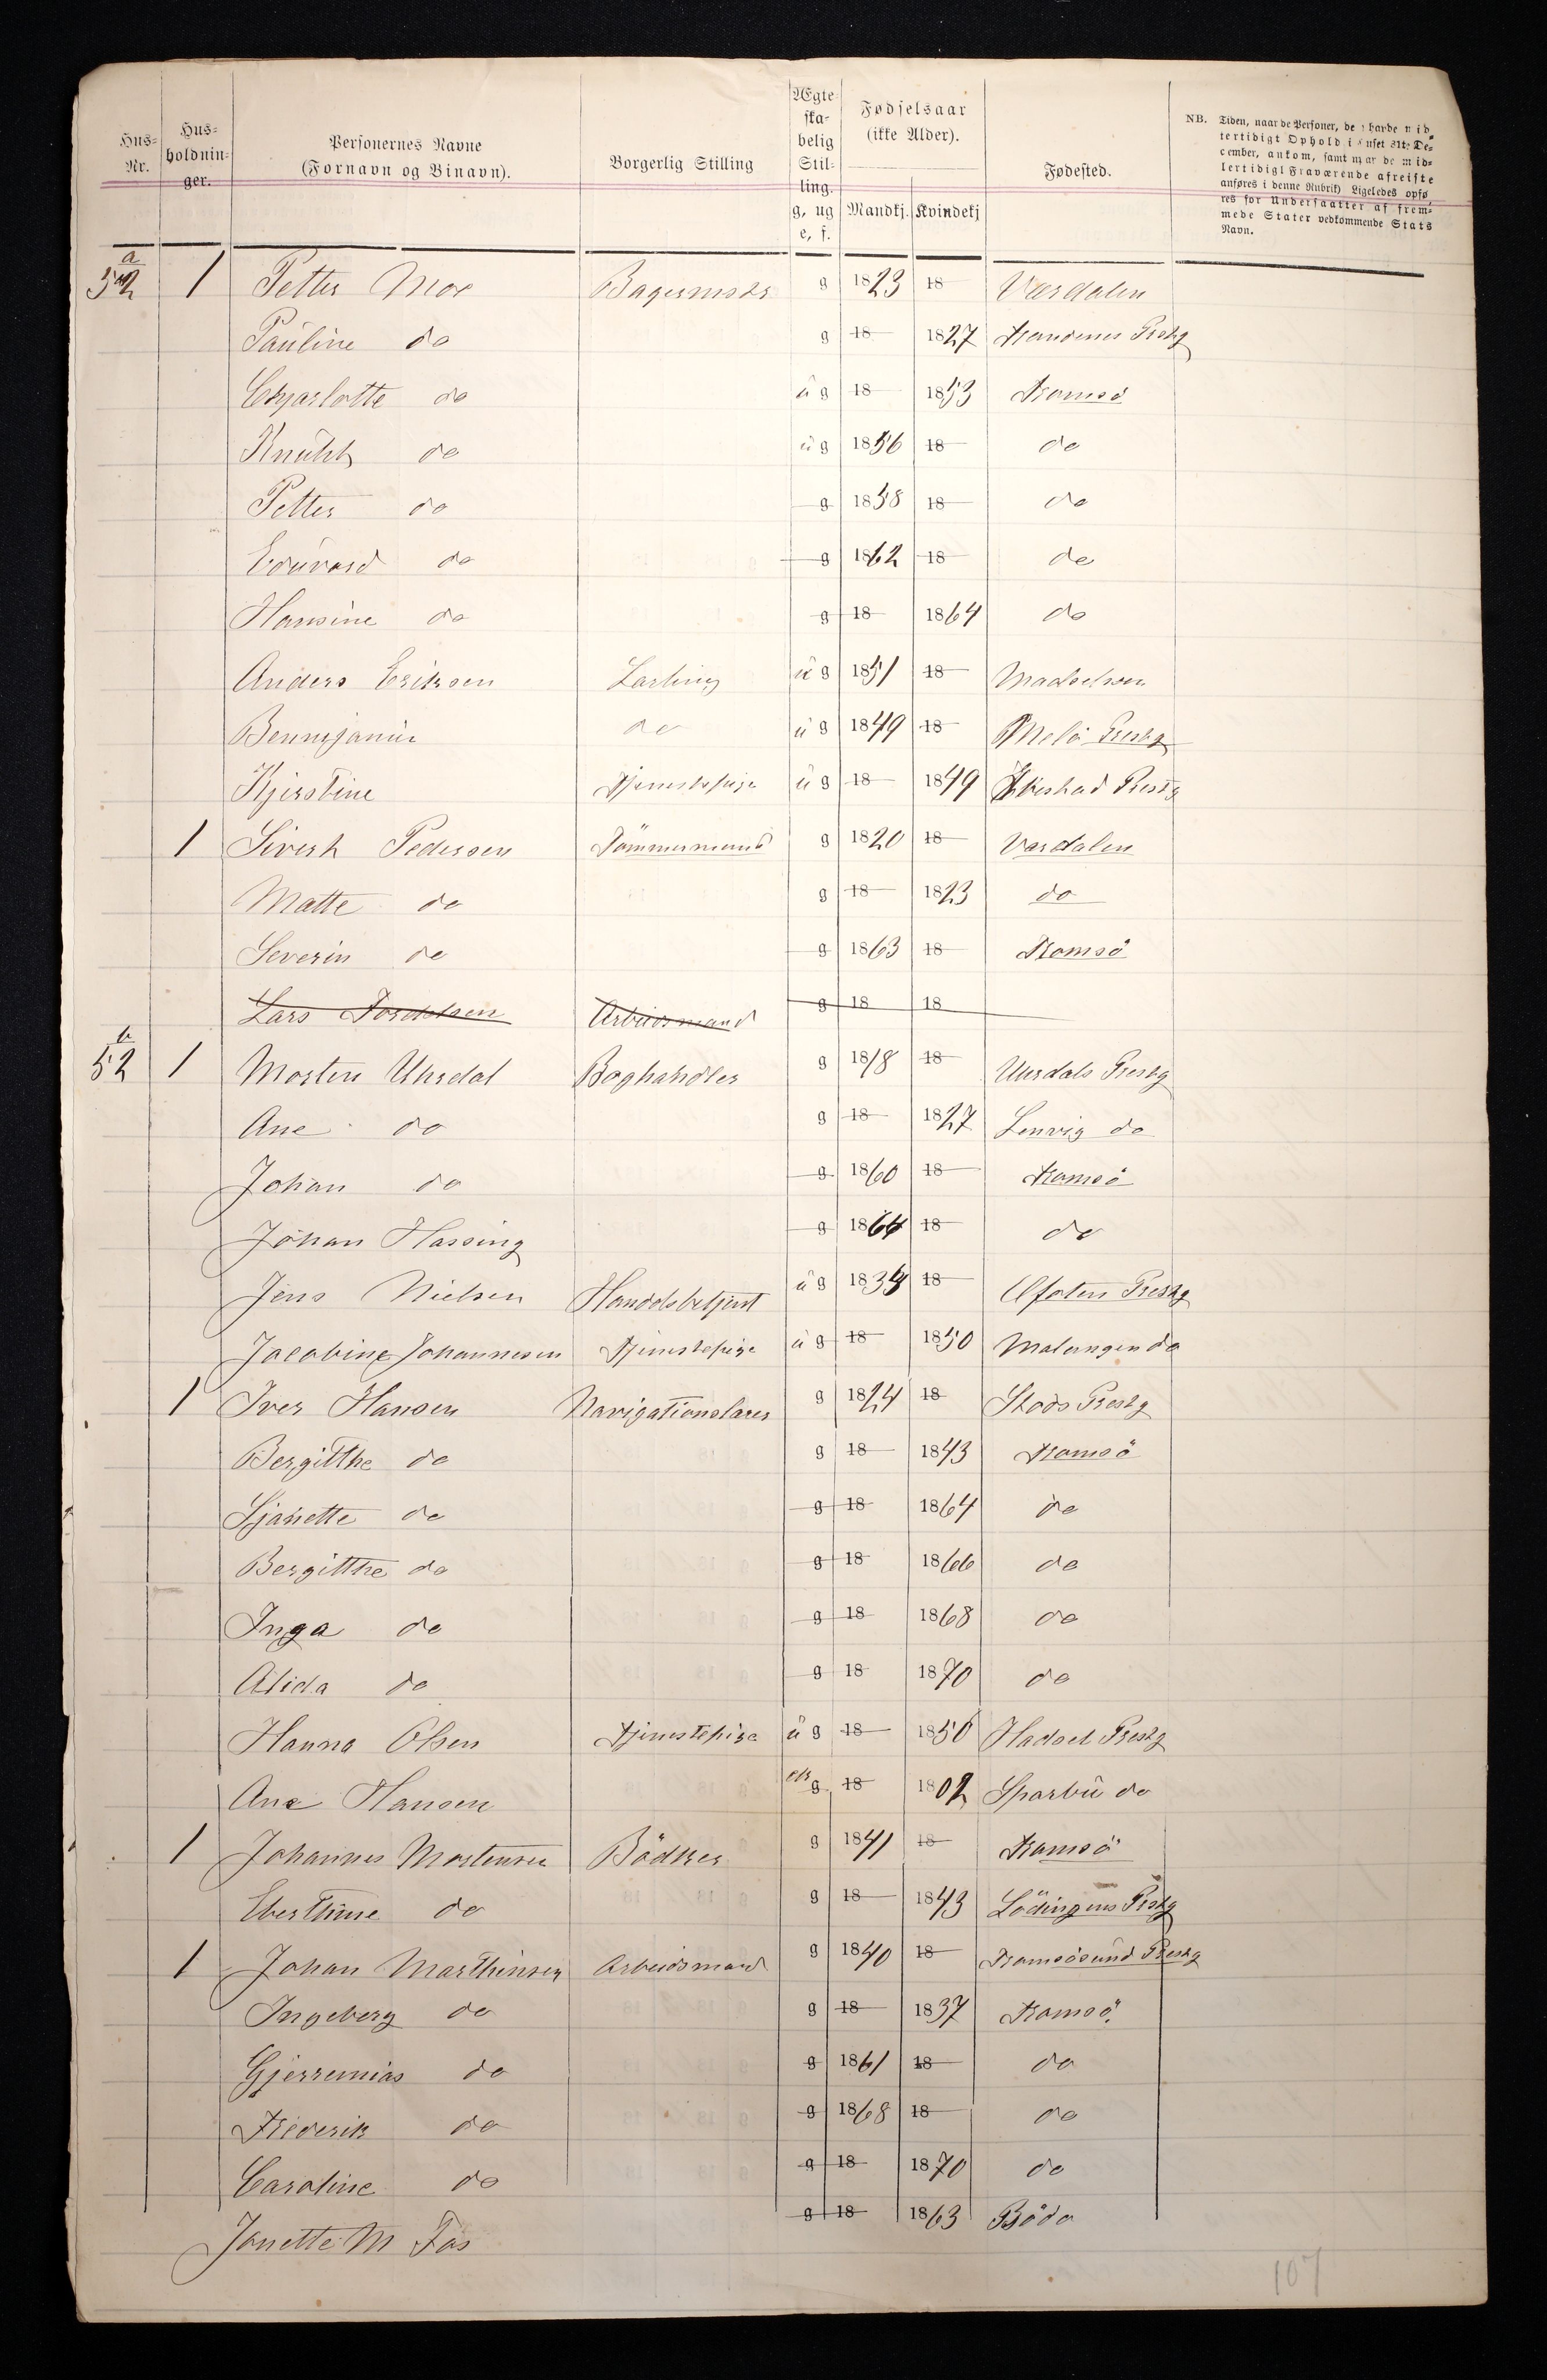 Hus-Nr. Hus-holdnin-ger. Personernes Navne (Fornavn og Binavn). Borgerlig Stilling Ægte-ska-belig Stil-ling. g, ug e, f. Fødselsaar (ikke Alder). Mandkj. Kvindekj Fødested.
NB. Tiden, naar de Personer, de havde mid-
lertidigt Ophold i Huset 31te De-
cember, ankom, samt naar de mid-
lertidigt Fraværende afreiste
anføres i denne Rubrik) Ligeledes opfø-
res for Undersaatter af frem-
mede Stater vedkommende Stats
Navn.
52 a 1 Petter Moe Bagermstr g 1823 18 Værdalen
Pauline do g 18 1827 Prestg
Chjarlotte do ug 18 1853 Tromsö
Knuht do ug 1856 18 do
Petter do g 1858 18 do
Eduvard do g 1862 18 do
Hansine do g 18 1864 do
Anders Eriksen Lærling ug 1851 18
Bennjamin do ug 1849 18 Melö Prestg
Kjirstine Tjenestepige ug 18 1849 Ibestad Prestg
1 Sivert Pedersen Tömmermand g 1820 18 Værdalen
Matte do g 18 1823 do
Severin do g 1863 18 Tromsö
Lars Arbeidsmand g 18 18
52 b 1 Morten Unsdal Boghandler g 1818 18 Unsdals Prestg
Ane do g 18 1827 Lenvig do
Johan do g 1860 18 Tromsö
Johan Hassing g 1864 18 do
Jens Nielsen Handelsbetjent ug 1834 18 Ofoten Prestg
Jacobine Johannesen Tjenestepige ug 18 1850 Malangen do
1 Iver Hansen Navigationslærer g 1824 18 Stods Prestg
Bergitthe do g 18 1843 Tromsö
Sjanette do g 18 1864 do
Bergitthe do g 18 1866 do
Inga do g 18 1868 do
Alida do g 18 1870 do
Hanna Olsen Tjenestepige ug 18 1850 Hadsel Prestg
Ane Hansen enk g 18 1802 Sparbu do
1 Johannes Mortensen Bödker g 1841 18 Tromsö
Eberthine do g 18 1843 Lödingens Prstg
1 Johan Marthinsen Arbeidsmand g 1840 18 Tromsösund Prestg
Ingeberg do g 18 1837 Tromsö
Gjerremias do g 1861 18 do
Frederik do g 1868 18 do
Caroline do g 18 1870 do
Janette M Fos g 18 1863 Bödo
107